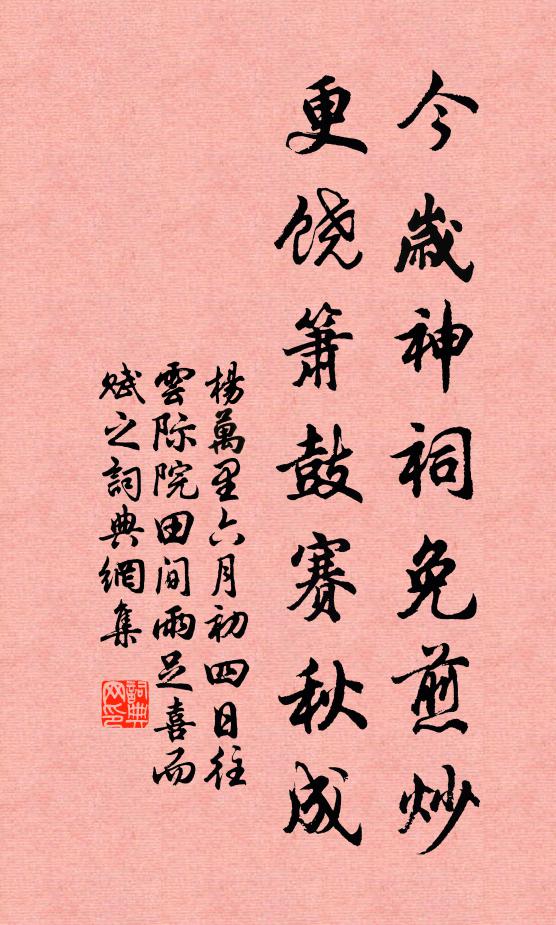 今歲神祠免煎炒
更饶箫鼓賽秋成
楊萬里六月初四日往
雲际院田间雨足喜而
赋之詞典網集
詞典网印